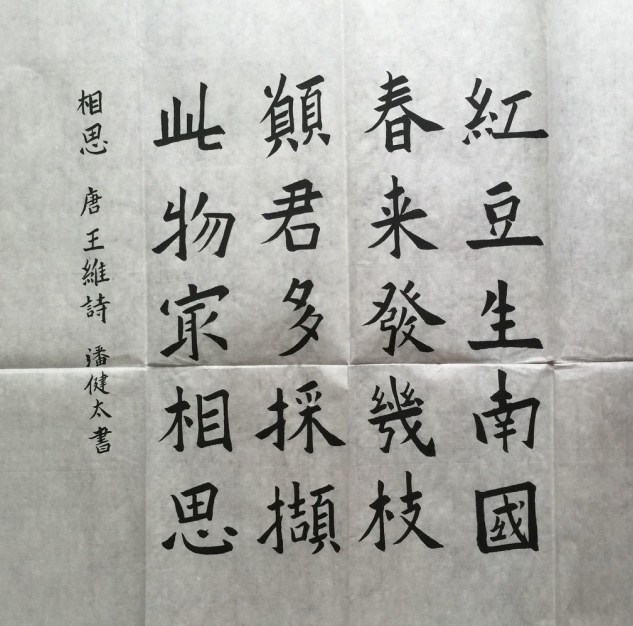 紅豆生南國
春来發幾枝
願君多採擷
此物㝡相思
相思 唐王維詩 潘健太書